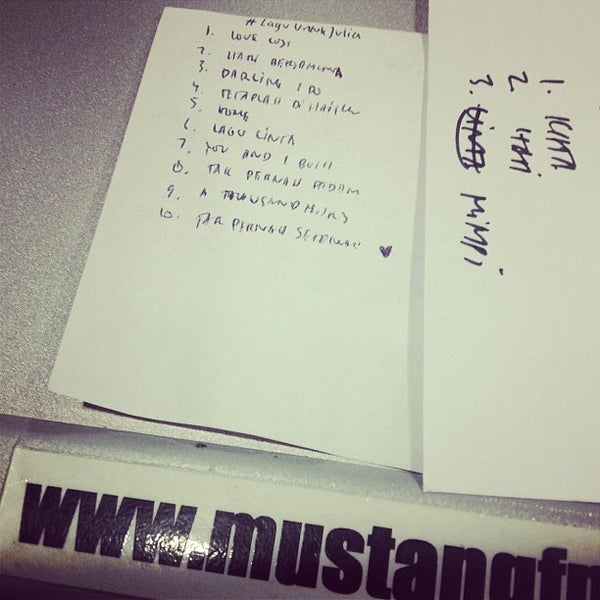 # Lagu Untuk Julia
1. LOVE
2. HARI BERSAMAMU
3. DARLING I DO
4. TETAPLAH DIHATIKU
5.
6. LAGU CINTA
7. YOU AND I BOTH
8. TAK PERNAH PADAM
9. A THOUSAND MILES
10. TAK PERNAH SETENGAH
1. KITA
2. HARI
3. MIMPI
www.mustangf